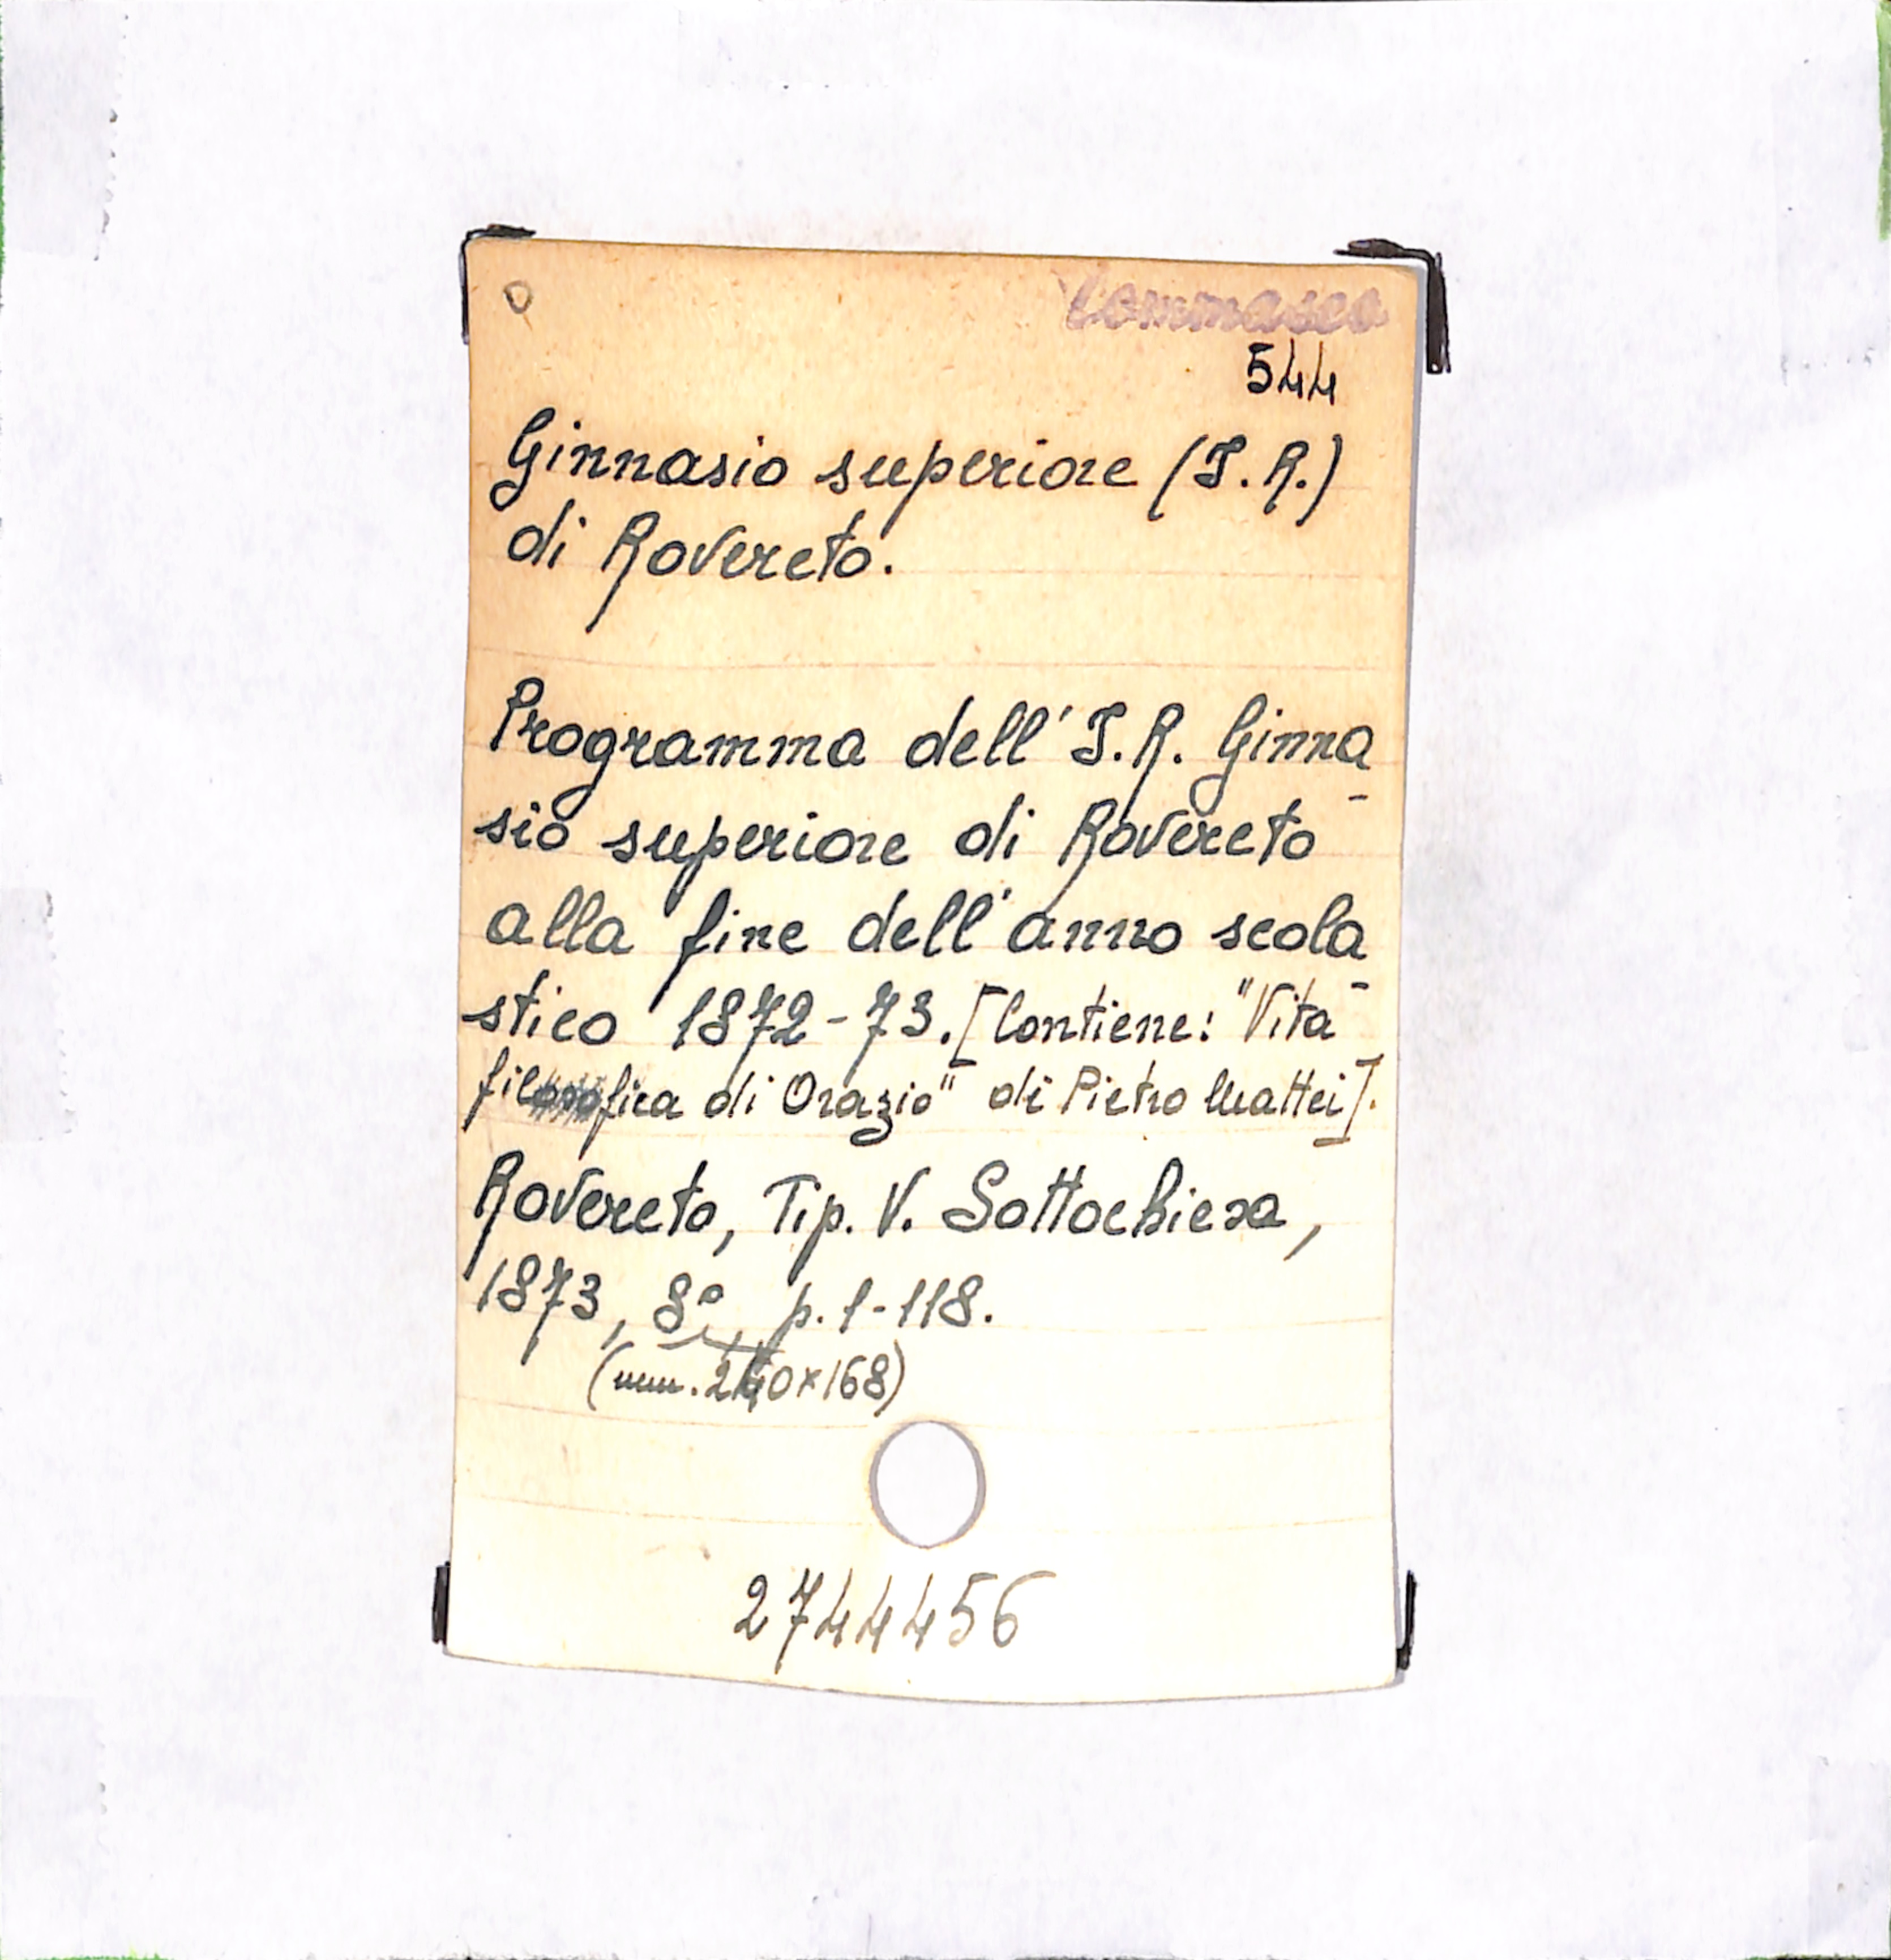 Tommaseo
544
Ginnasio superiore (I.R.)
di Rovereto.
Programma dell'I.R. Ginna-
sio superiore di Rovereto
alla fine dell'anno scola-
stico 1872-73. [Contiene: "Vita
filosofica di Orazio" di Pietro Mattei].
Rovereto, Tip. V. Sottochiesa,
1873, 8° p. 1-118.
(mm. 240×168)
2744456